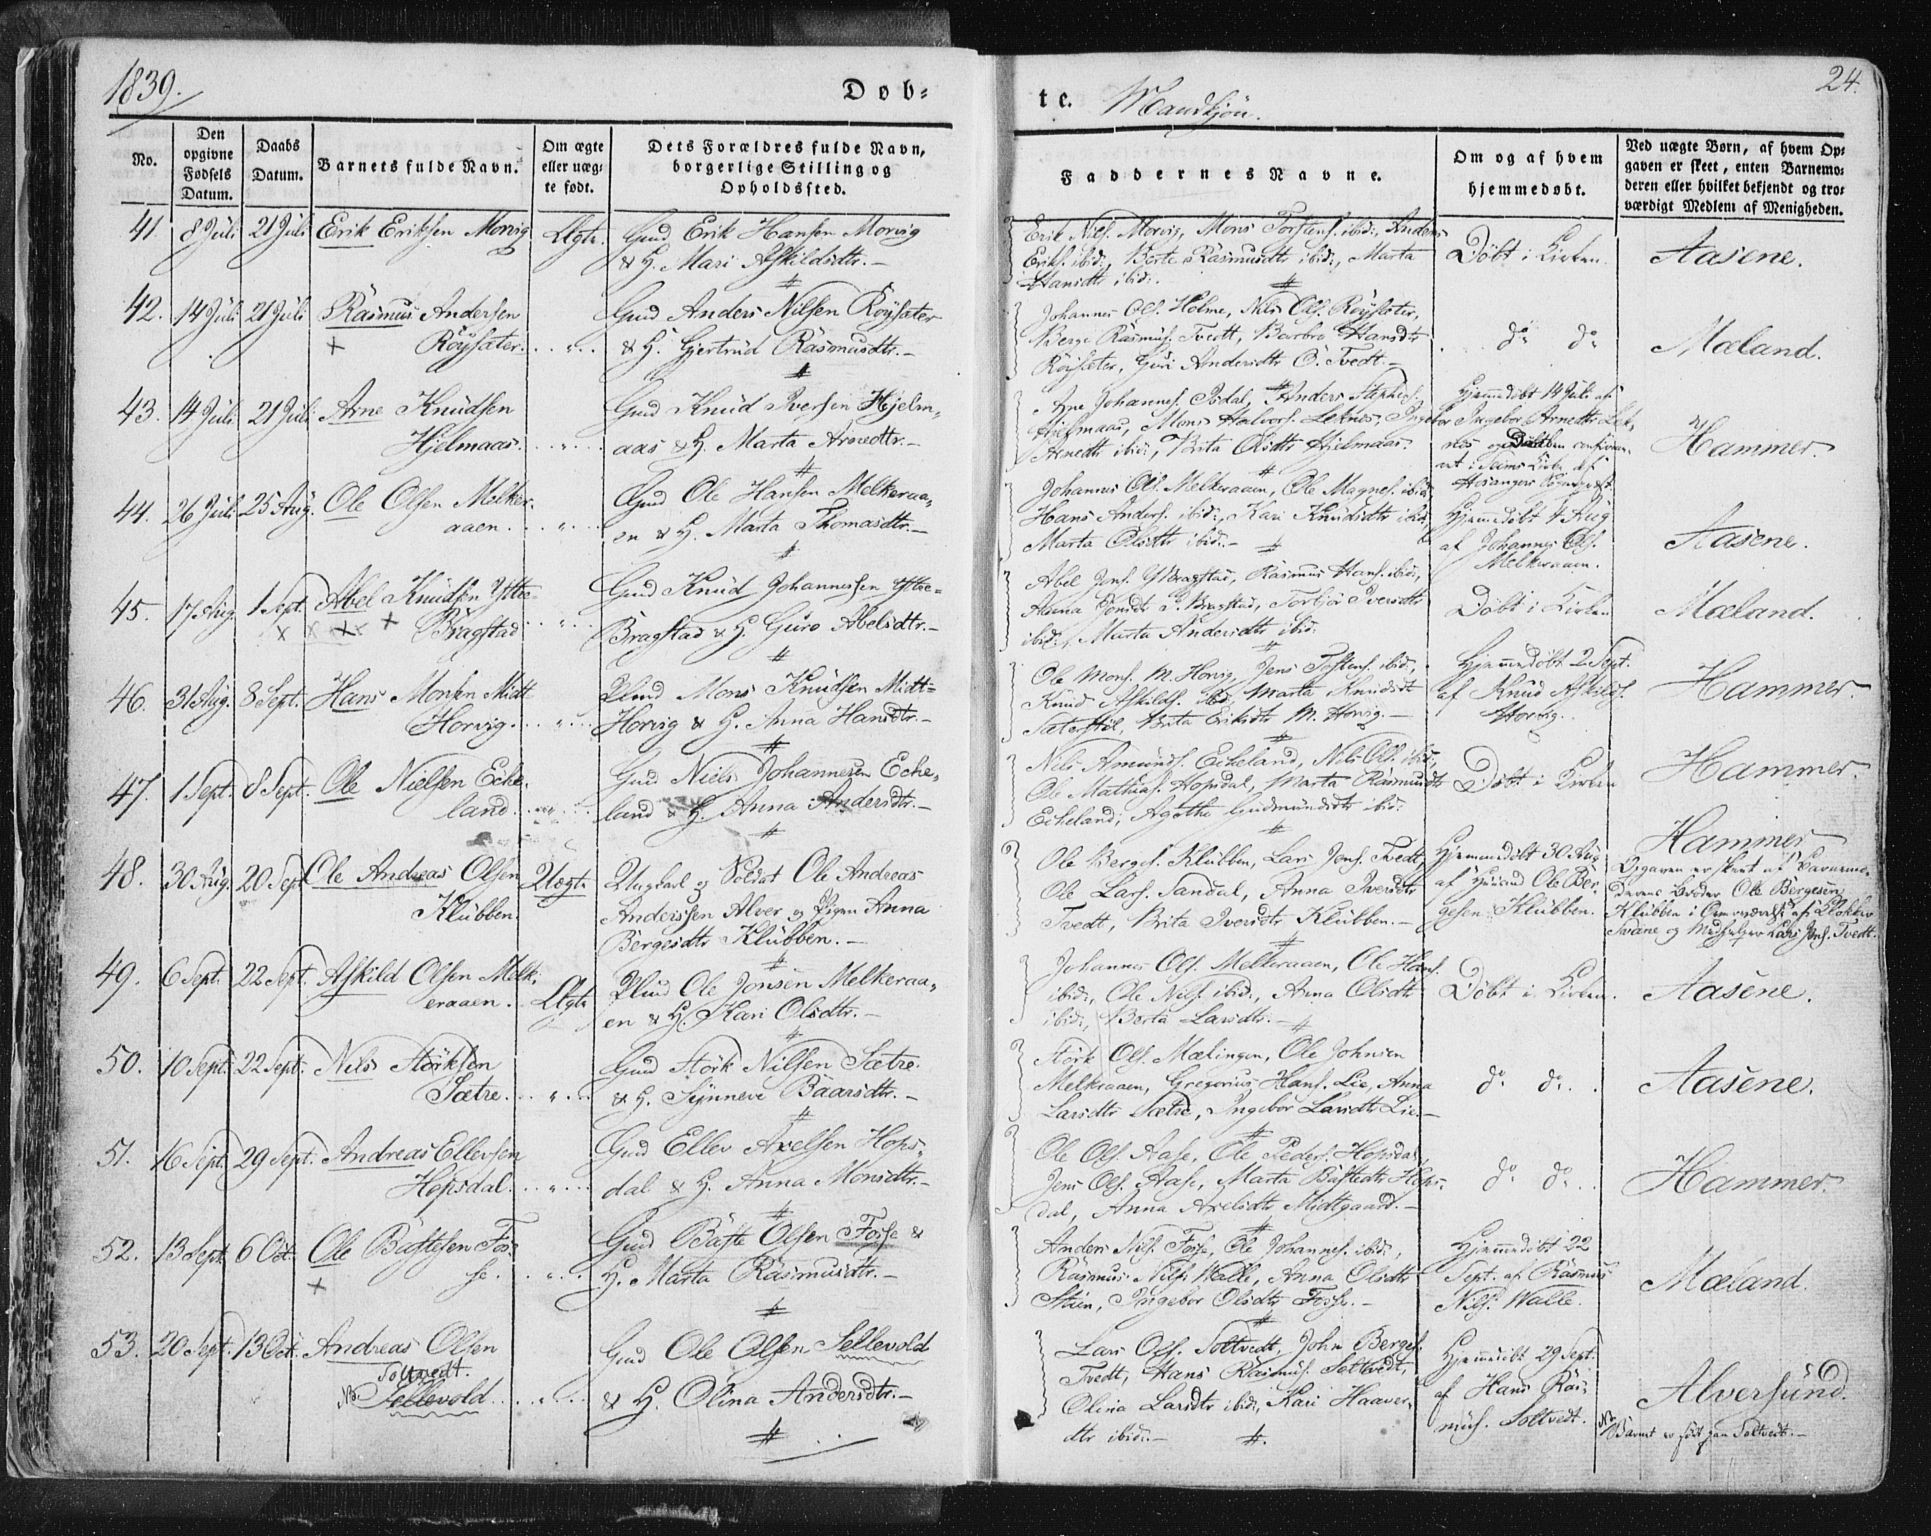 1839.
Døb-
te. Mandkjön.
24.
No.
Den opgivne Fødsels Datum.
Daabs Datum.
Barnets fulde Navn.
Om ægte eller uægte født.
Dets Forældres fulde Navn, borgerlige Stilling og Opholdssted.
Faddernes Navne.
Om og af hvem hjemmedøbt.
Ved uægte Børn, af hvem Opgaven er skeet, enten Barnemoderen eller hvilket bekjendt og troværdigt Medlem af Menigheden.
41. 8 Juli 21 Juli Erik Eriksen Morvig Ægte Gmd Erik Hansen Morvig
& H. Mari Askildsdtr. -
Erik Nils. Morvig, Mons Torstens. ibid:, Anders
Eriks. ibid:, Berte Rasmusdtr ibid:, Marta
Hansdtr ibid:
Döbt i Kirken.
Aasene.
42. 14 Juli 21 Juli Rasmus Andersen
Röysæter.
Gmd Anders Nilsen Röysæter
& H. Gjertrud Rasmusdtr. -
Johannes Ols. Holme, Nils Ols. Röysæter,
Berge Rasmus. Tvedt, Barbro Hansdtr
Röysæter, Guri Andersdtr Ö. Tvedt. -
do do
Mæland.
43. 14 Juli 21 Juli Arne Knudsen
Hjelmaas.
Gmd Knud Iversen Hjelm-
aas & H. Marta Arnedtr. -
Arne Johannes. Isdal, Anders Stephens.
Hjelmaas, Mons Halvors. Leknes, Ingebor
Arnedtr ibid:, Brita Olsdtr Hjelmaas.
Hjemmedöbt 14 Juli af
Ingebor Arnedtr Lek-
nes og Daaben confirme-
ret i Seims Kirke af
Hosangers
Hammer.
44. 26 Juli 25 Aug. Ole Olsen Melker-
aaen.
Gmd Ole Hansen Melkeraa-
en & H. Marta Thomasdtr. -
Johannes Ols. Melkeraaen, Ole Magnes. ibid:
Hans Anders. ibid:, Kari Knudsdtr ibid:
Marta Olsdtr ibid: -
Hjemmedöbt 4 Aug
af Johannes Ols.
Melkeraaen.
Aasene.
45. 17 Aug. 1 Sept. Abel Knudsen Yttre-
Bragstad
Gmd Knud Johannessen Yttre-
Bragstad & H. Guro Abelsdtr. -
Abel Jons. Y. Bragstad, Rasmus Hans. ibid:,
Anna Jonsdtr Y. Bragstad, Torbjör Iversdtr
ibid:, Marta Andersdtr ibid:
Döbt i Kirken
Mæland.
46. 31 Aug. 8 Sept. Hans Monsen Midt
Horvig.
Plmd Mons Knudsen Midt-
Horvig & H. Anna Hansdtr. -
Ole Mons. M. Horvig, Jens Tostens. ibid:,
Knud Askilds. ibid:, Marta Knudsdtr
Sæterstöl, Brita Eriksdtr M. Horvig. -
Hjemmedöbt 2 Sept.
af Knud Askilds.
Horvig.
Hammer.
47. 1 Sept. 8 Sept. Ole Nielsen Eche-
land.
Gmd Niels Johannesen Eche-
land & H. Anna Andersdtr. -
Nils Amunds. Echeland, Nils Ols. ibid:,
Ole Mathias. Hopsdal, Marta Rasmusdtr
Echeland, Agathe Gudmundsdtr ibid:
Döbt i Kirken
Hammer.
48. 30 Aug. 20 Sept Ole Andreas Olsen
Klubben.
Uægte Ungkarl og Soldat Ole Andreas
Anderssen Alver og Pigen Anna
Bergesdtr Klubben. -
Ole Berges. Klubben, Lars Jens. Tvedt,
Ole Lars. Sandal, Anna Iversdtr
Tvedt, Brita Iversdtr Klubben. -
Hjemmedöbt 30 Aug
af Huusmd Ole Ber-
gesen Klubben.
Hammer
Opgaven er skeet af Barnemo-
derens Broder Ole Bergesen
Klubben i Overværelse af Klokker
Svane og Medhjelper Lars Jens. Tvedt.
49. 6 Sept. 22 Sept. Askild Olsen Melk-
eraaen.
Ægte Plmd Ole Jonsen Melkeraa-
en & H. Kari Olsdtr. -
Johannes Ols. Melkeraaen, Ole Hans.
ibid:, Ole Nils. ibid:, Anna Olsdtr
ibid:, Berta Larsdtr. -
Döbt i Kirken.
Aasene.
50. 10 Sept. 22 Sept. Nils Störksen
Sætre.
Gmd Störk Nilsen Sætre.
& H. Synneve Baarsdtr. -
Störk Ols. Mælingen, Ole Johnsen
Melkeraaen, Gregorius Hans. Lie, Anna
Larsdtr Sætre, Ingebor Larsdtr Lie. -
do do.
Aasene.
51. 16 Sept. 29 Sept. Andreas Ellevsen
Hopsdal.
Gmd Ellev Axelsen Hops-
dal & H. Anna Monsdtr. -
Ole Ols. Aase, Ole Peders. Hopsdal,
Jens Ols. Aase, Marta Bastedtr Hops-
dal, Anna Axelsdtr Midtgaard. -
do do.
Hammer.
52. 13 Sept. 6 Oct. Ole Baste​sen Fos-
se.
Gmd Baste Olsen Fosse &
H. Marta Rasmusdtr. -
Anders Nils. Fosse, Ole Johannes. ibid:,
Rasmus Nils. Walle, Anna Olsdtr
Steen, Ingebor Olsdtr Fosse. -
Hjemmedöbt 22
Sept. af Rasmus
Nils. Walle.
Mæland.
53. 20 Sept. 13 Oct. Andreas Olsen
Soltvedt.
NB. Sellevold
Gmd Ole Olsen Sellevold
& H. Olina Andersdtr. -
Lars Ols. Soltvedt, John Berges.
Tvedt, Hans Rasmus. Soltvedt,
Olina Larsdtr ibid:, Kari Haaver-
dtr ibid: -
Hjemmedöbt 29 Sept.
af Hans Ras-
mus. Soltvedt.
Alversund.
NB Barnet er födt paa Soltvedt. -